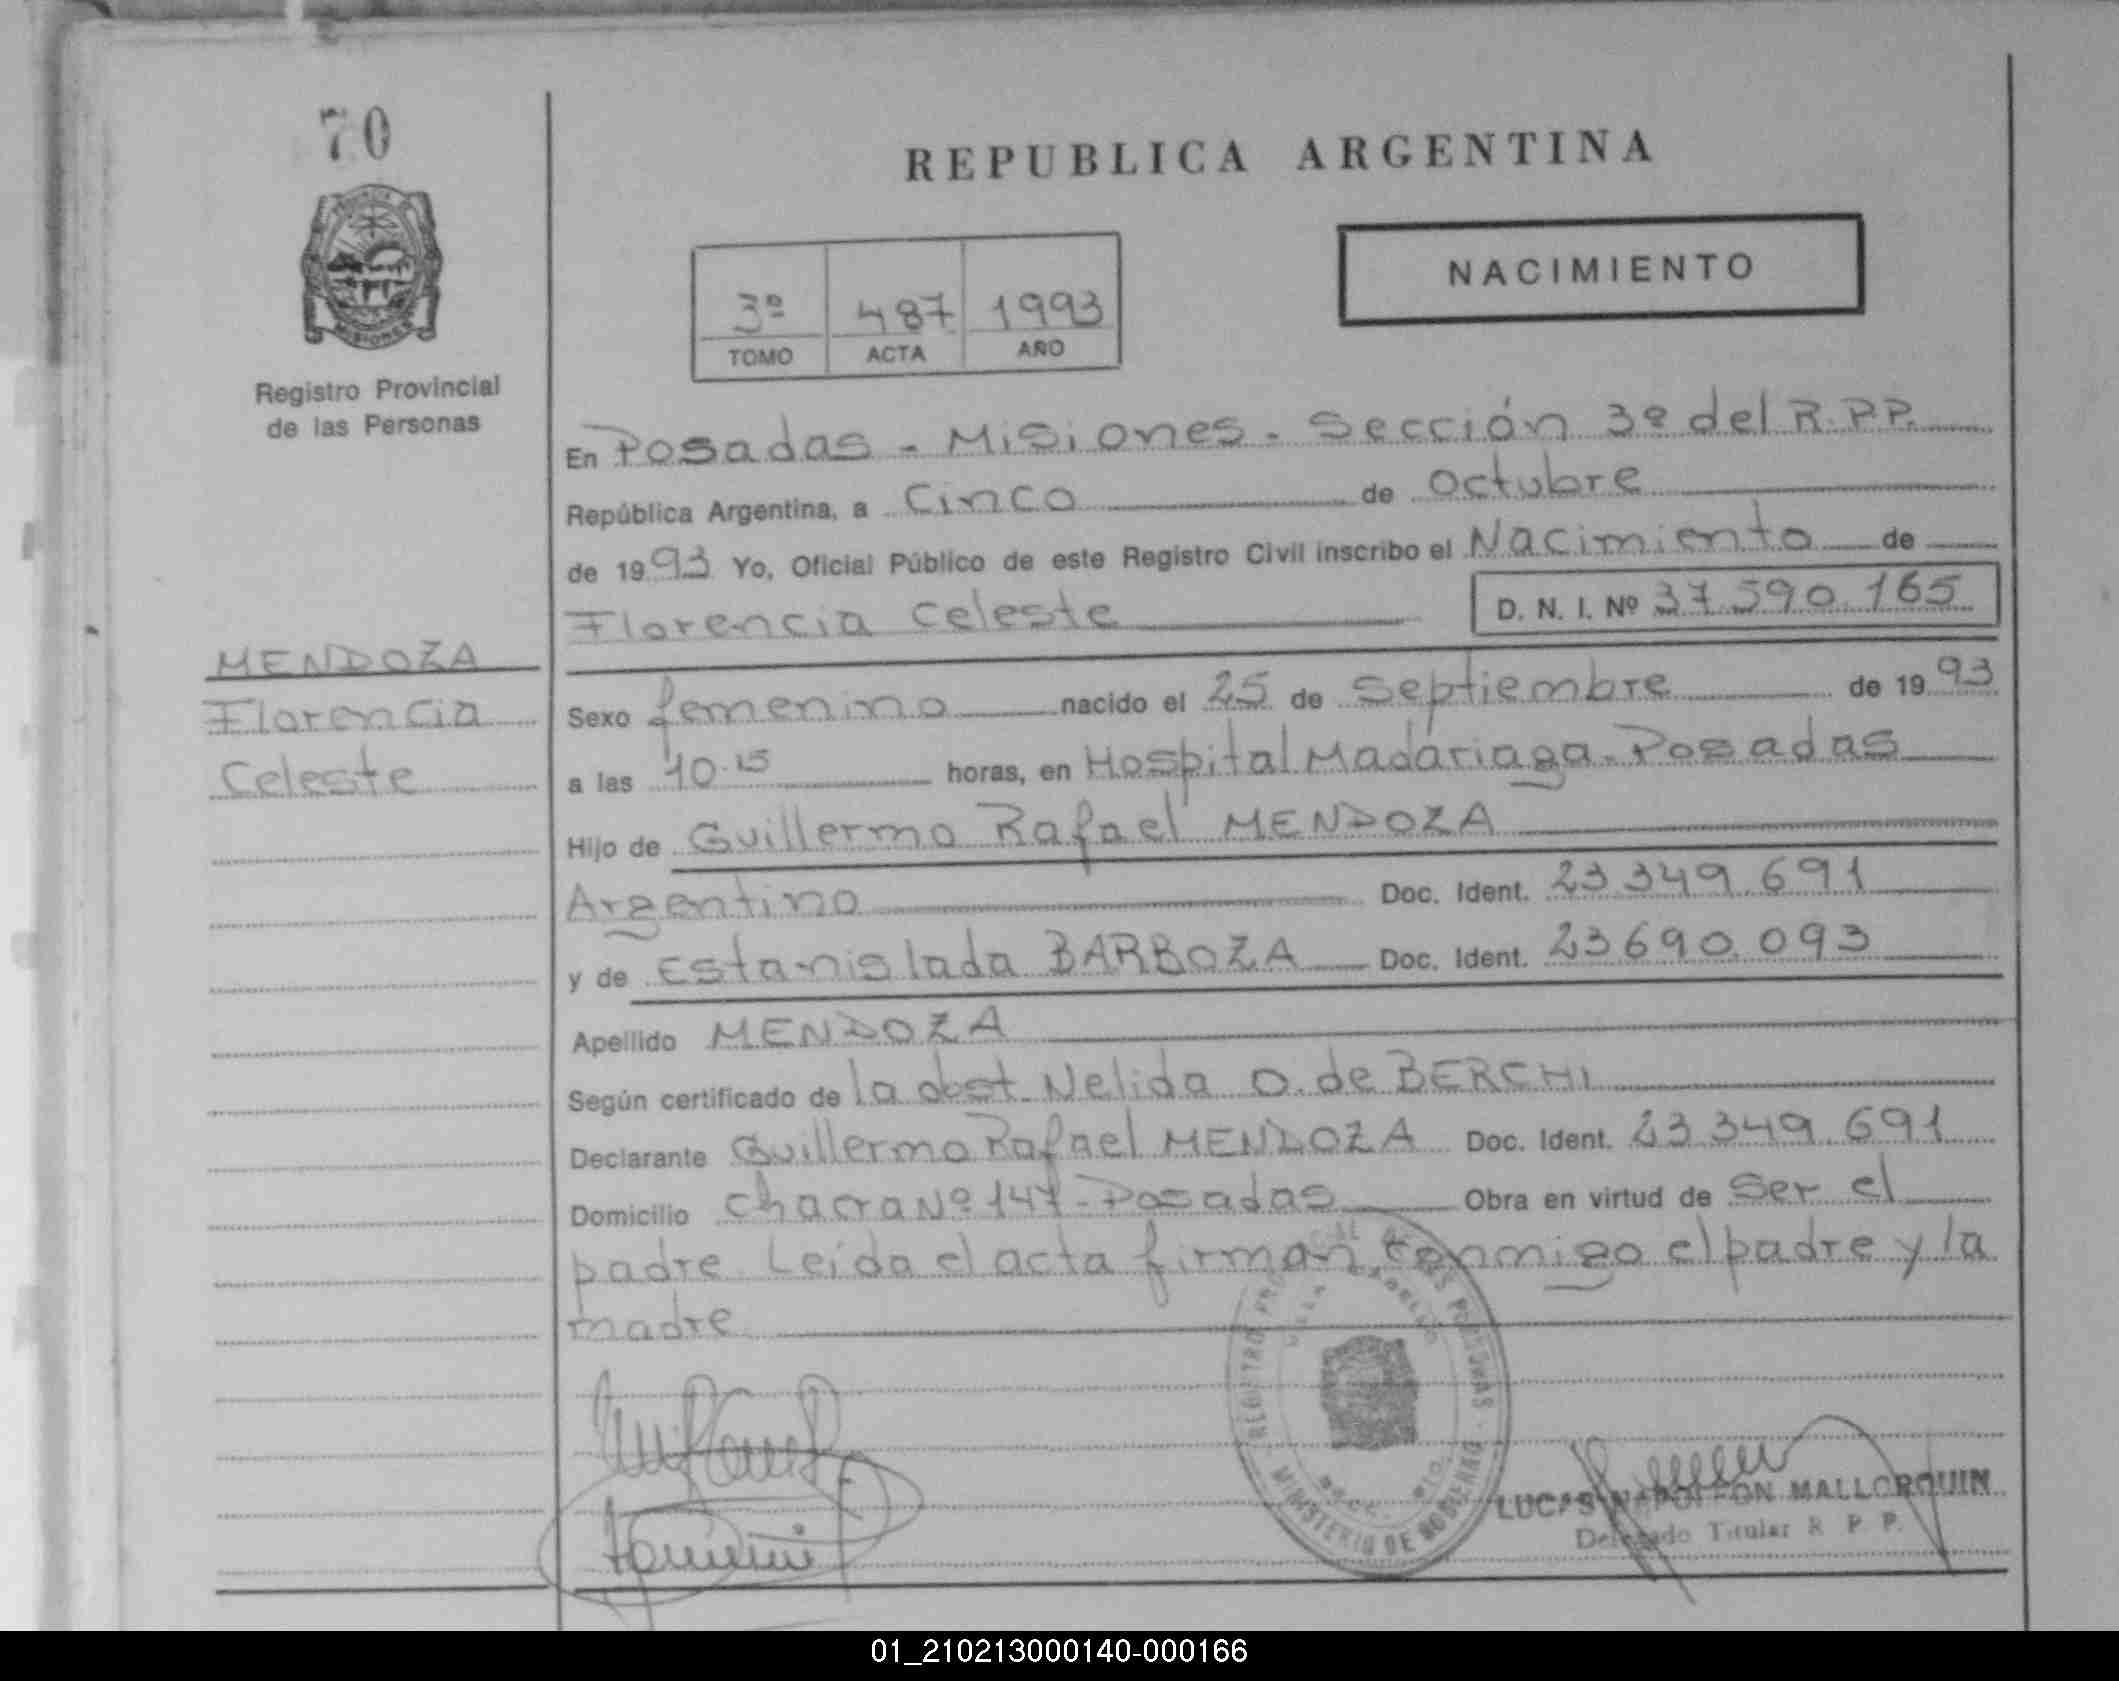 70
REPUBLICA ARGENTINA
NACIMIENTO
3º 487 1993
TOMO ACTA AÑO
MISIONES
Registro Provincial
de las Personas
En Posadas - Misiones - Sección 3º del R.P.P.
República Argentina, a Cinco de Octubre
de 1993 Yo, Oficial Público de este Registro Civil inscribo el Nacimiento de
Florencia Celeste D. N. I. Nº 37 590 165
MENDOZA
Florencia
Celeste
Sexo femenino nacido el 25 de Septiembre de 1993
a las 10.15 horas, en Hospital Madariaga - Posadas
Hijo de Guillermo Rafael MENDOZA
Argentino Doc. Ident. 23 349 691
y de Estanislada BARBOZA Doc. Ident. 23690.093
Apellido MENDOZA
Según certificado de la obst. Nelida O. de BERCHI
Declarante Guillermo Rafael MENDOZA Doc. Ident. 23 349 691
Domicilio Chacra Nº 147 - Posadas Obra en virtud de Ser el
padre. Leída el acta firman conmigo el padre y la
madre
REGISTRO PERSONAS
MINISTERIO DE GOBIERNO
LUCAS NAPOLEON MALLORQUIN
Delegado Titular R. P. P.
01_210213000140-000166